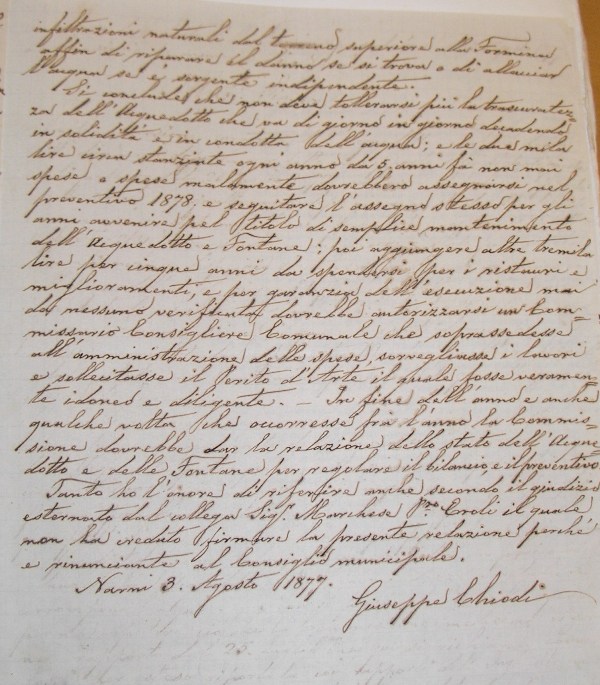 infiltrazioni naturali dal terreno superiore alla Formina
affin di riparare il danno se si trova o di allacciar
l'acqua se è sorgente indipendente.
Si conclude che non deve tollerarsi più la trascuratez=
za dell'Acquedotto che va di giorno in giorno decadendo
in solidità e in condotta dell'acqua; e le due mila
lire circa stanziate ogni anno da 5. anni fà non mai
spese o spese malamente dovrebbero assegnarsi nel
preventivo 1878, e seguitare l'assegno stesso per gli
anni avvenire pel titolo di semplice mantenimento
dell'Acquedotto e Fontane; poi aggiungere altre tremila
lire per cinque anni da spendersi per i restauri e
miglioramenti, e per garanzia dell'esecuzione mai
da nessuno verificata dovrebbe autorizzarsi un Com=
missario Consigliere Comunale che soprassedesse
all'amministrazione delle spese, sorvegliasse i lavori
e sollecitasse il Perito d'Arte il quale fosse veramen=
te idoneo e diligente. – In fine dell'anno e anche
qualche volta che occorresse frà l'anno la Commis=
sione dovrebbe dar la relazione dello stato dell'Acque=
dotto e delle Fontane per regolare il bilancio, e il preventivo
Tanto ho l'onore di riferire anche secondo il giudizio
esternato dal collega Sigr. Marchese Eroli il quale
non ha creduto firmare la presente relazione perché
è rinunciante al Consiglio municipale.
Narni 3. Agosto 1877.
Giuseppe Chiodi